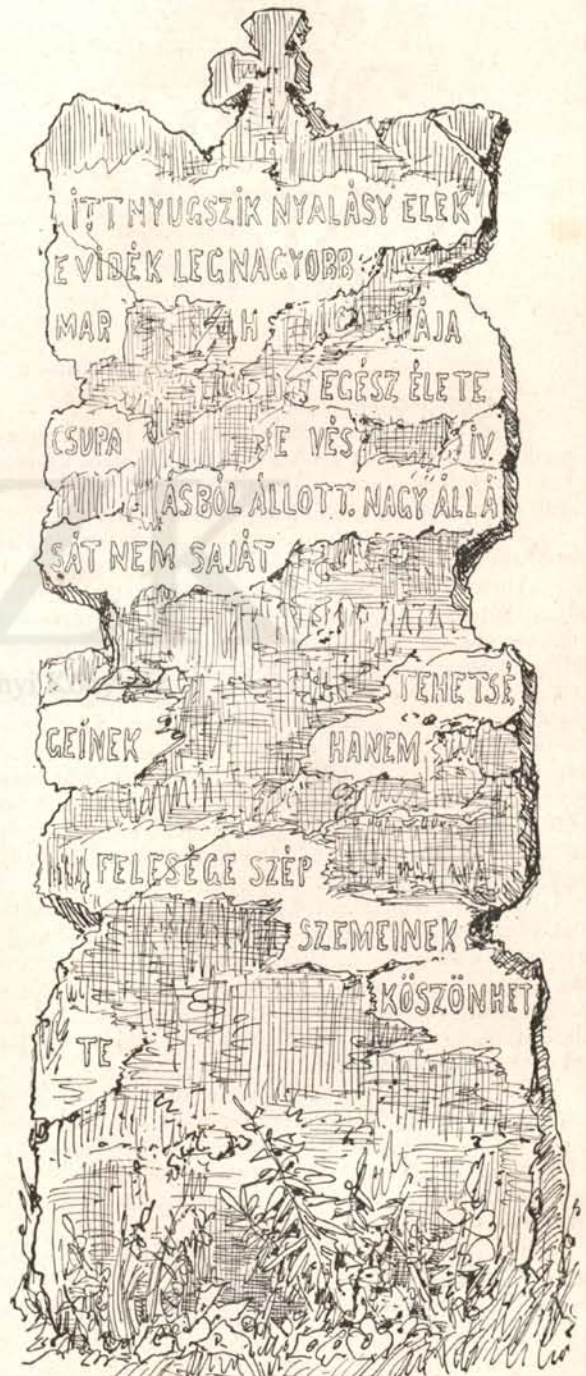 ITT NYUGSZIK NYALÁSY ELEK
E VIDÉK LEGNAGYOBB
MAR H ÁJA
EGÉSZ ÉLETE
CSUPA E VÉS IV
ÁSBÓL ÁLLOTT. NAGY ÁLLÁ
SÁT NEM SAJÁT
TEHETSÉ
GEINEK HANEM
FELESÉGE SZÉP
SZEMEINEK
KÖSZÖNHET
TE